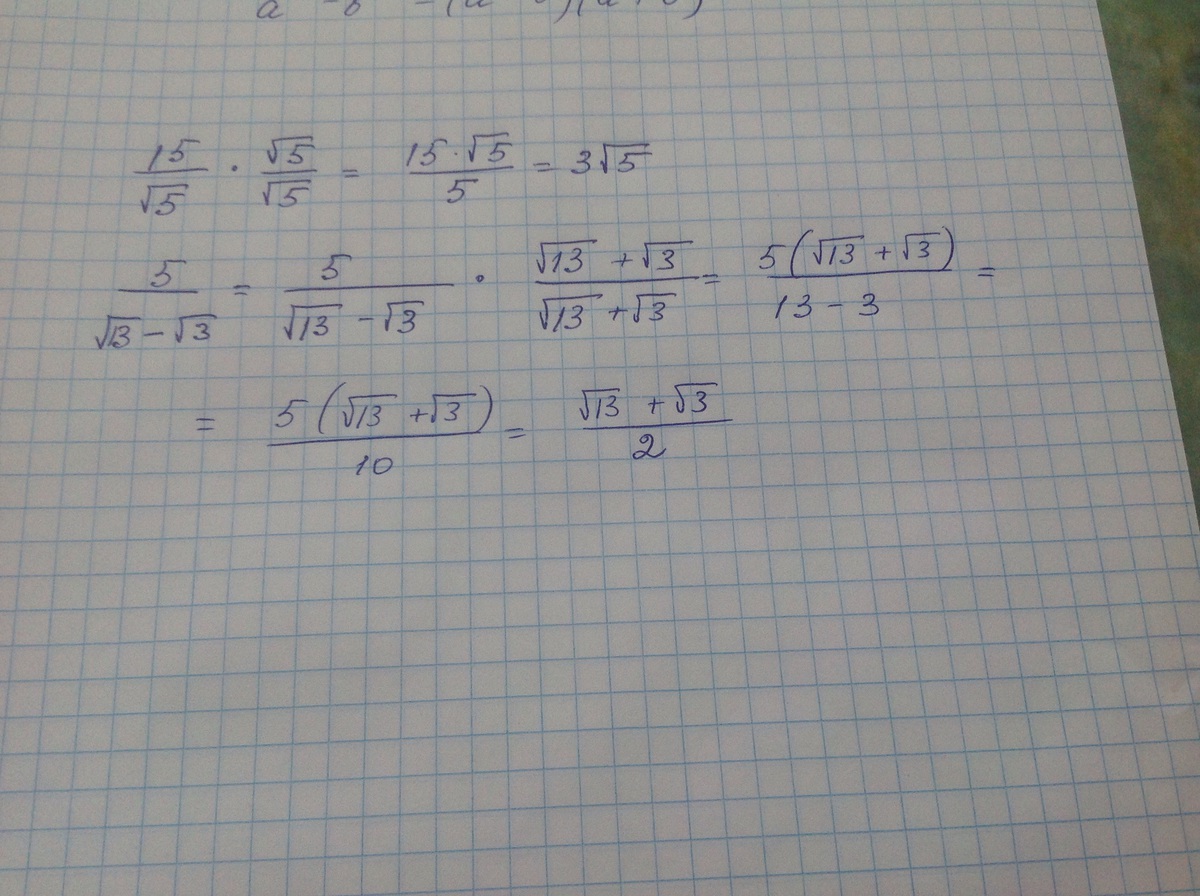 15/√5 · √5/√5 = 15·√5/5 = 3√5
5/(√13 − √3) = 5/(√13 − √3) · (√13 + √3)/(√13 + √3) = 5(√13 + √3)/(13 − 3) =
= 5(√13 + √3)/10 = (√13 + √3)/2